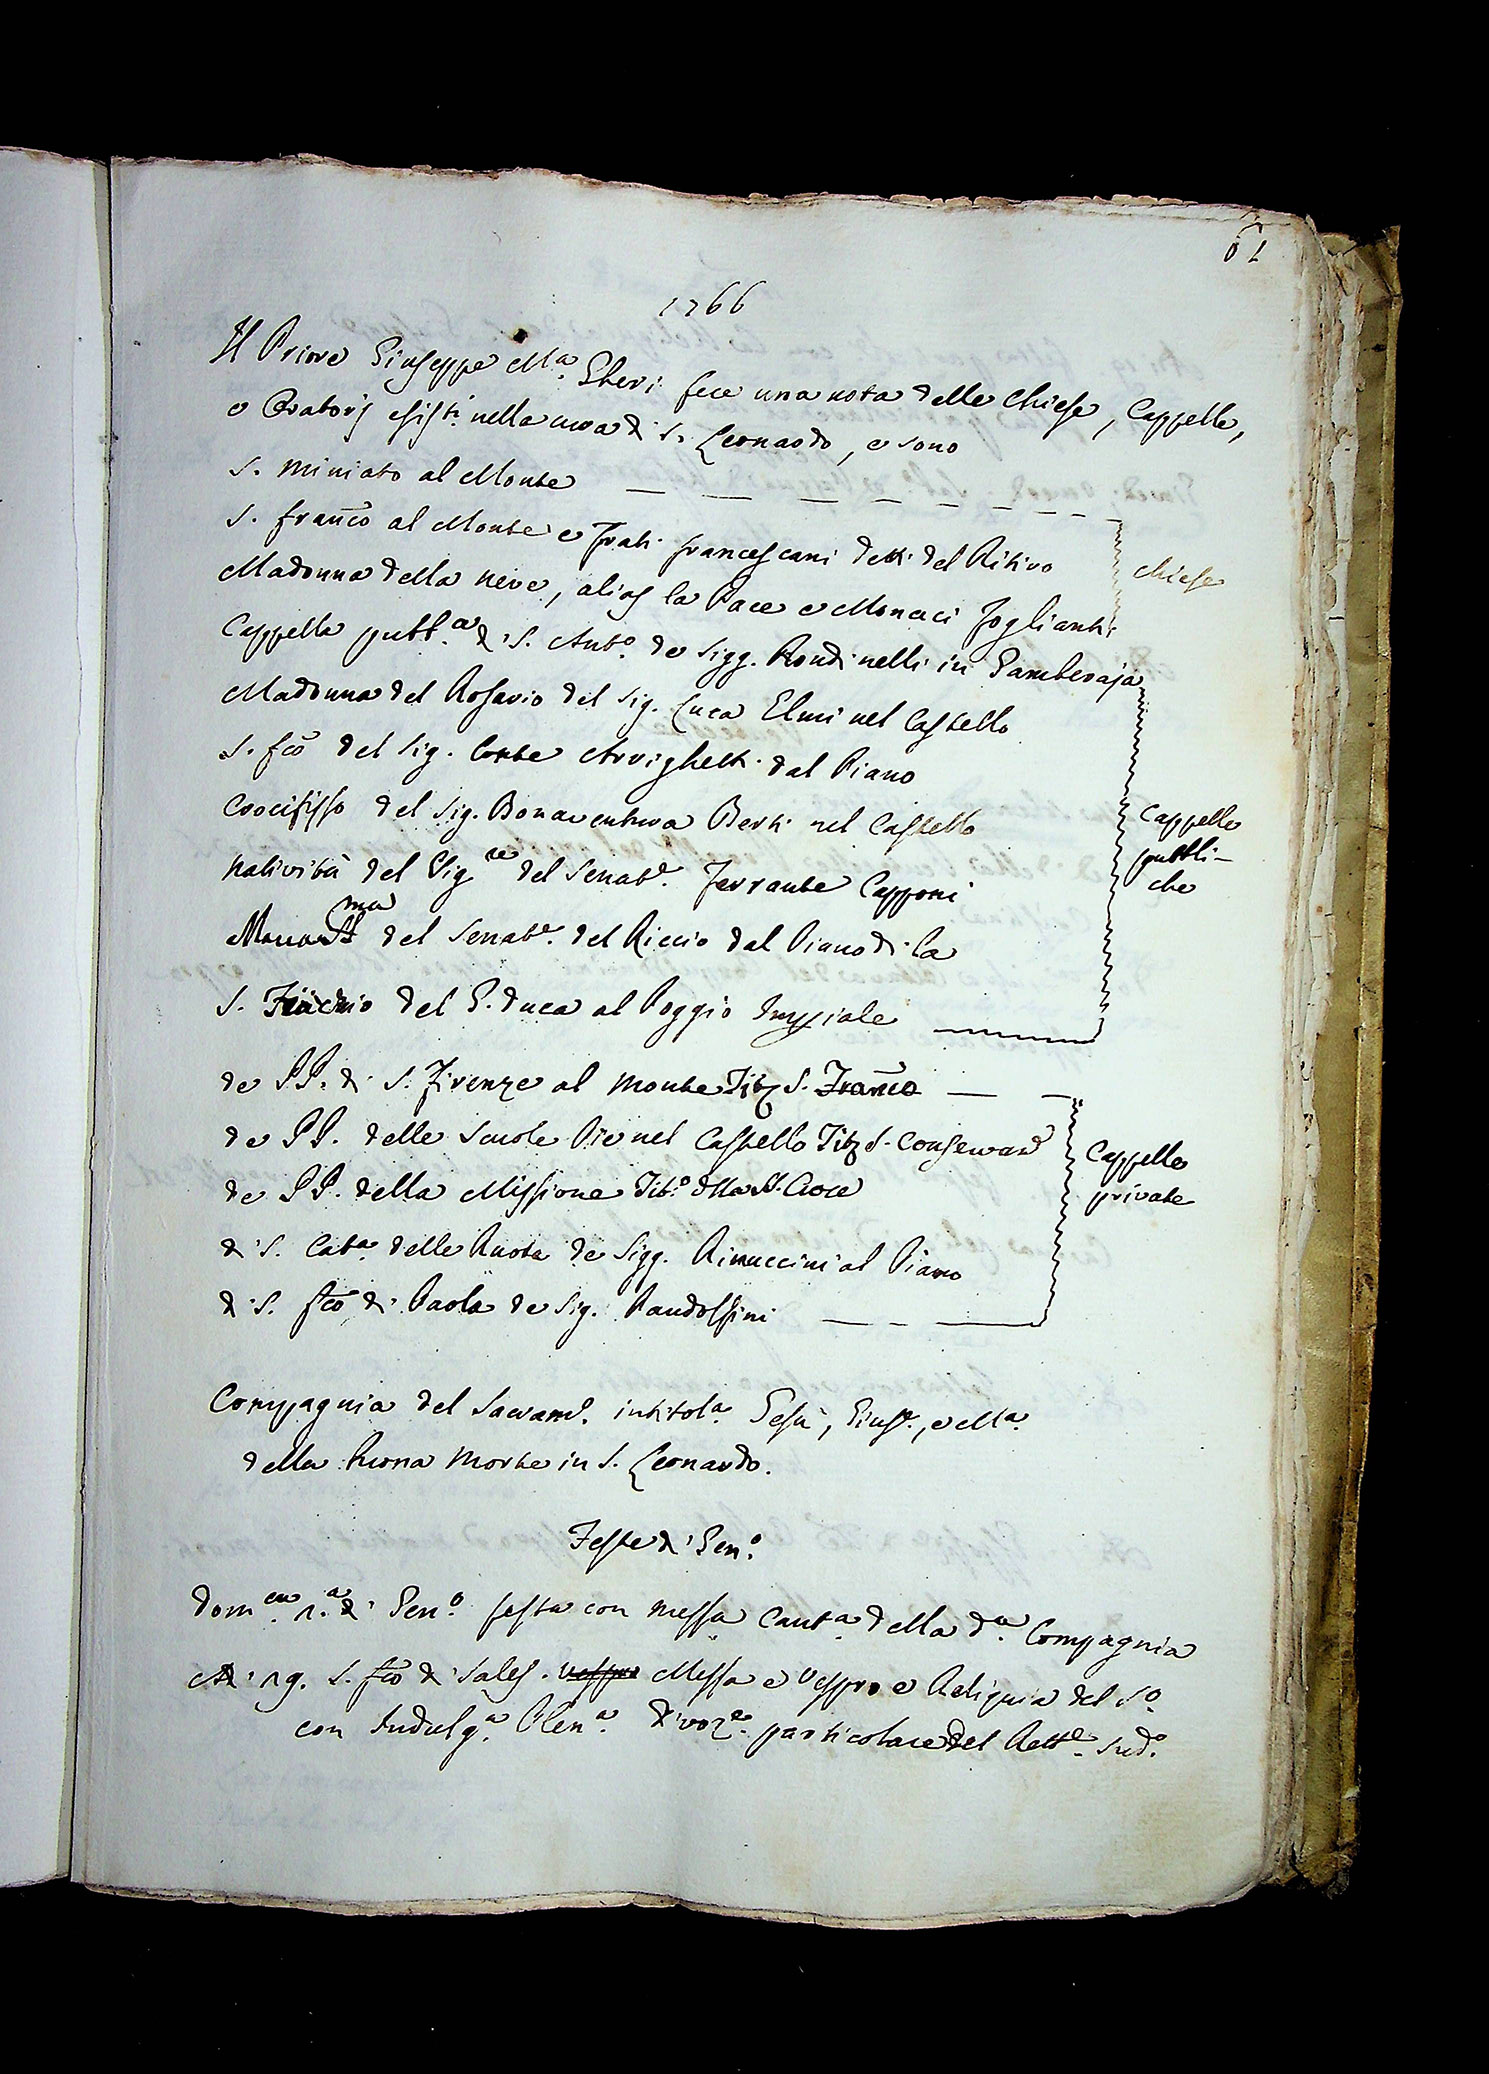 1766
Il Priore Giuseppe Ma. Gheri fece una nota delle Chiese, Cappelle,
e Oratorj esisti. nella cura di S. Leonardo, e sono
S. Miniato al Monte
S. Franco al Monte e Frati Francescani detti del Ritiro
Madonna della Neve, alias la Pace e Monaci Foglianti
Chiese
Cappella pubb.a di S. Anto. de Sigg. Rondinelli in Gamberaja
Madonna del Rosario del Sig. Luca Elmi nel Castello
S. Fco del Sig. Conte Arrighetti dal Piano
Crocifisso del Sig. Bonaventura Berti nel Castello
Natività del Sig.re del Senate. Ferrante Capponi
SS.ma del Senate. del Riccio dal Piano di là
S. del G. Duca al Poggio Impiale
Cappelle
pubbli-
che
de PP. di S. Firenze al Monte Tito S. Franco
de PP. delle Scuole Pie nel Castello Tito S.
de PP. della Missione Tito. della S. Croce
di S. Cata. delle Ruote de Sigg. Rinuccini al Piano
di S. Fco di Paola de Sig. Pandolfini
Cappelle
private
Compagnia del Sacramo. intitola. Gesù, Giuse., e Ma.
della Buona Morte in S. Leonardo.
Feste di Geno.
Domca. 1.a di Geno. festa con Messa Canta. della da. Compagnia
A di 29. S. Fco di Sales. Vespro Messa e Vespro e Reliquia del So
con Indulga. Plena. divoze. particolare del Rette. Sudo.